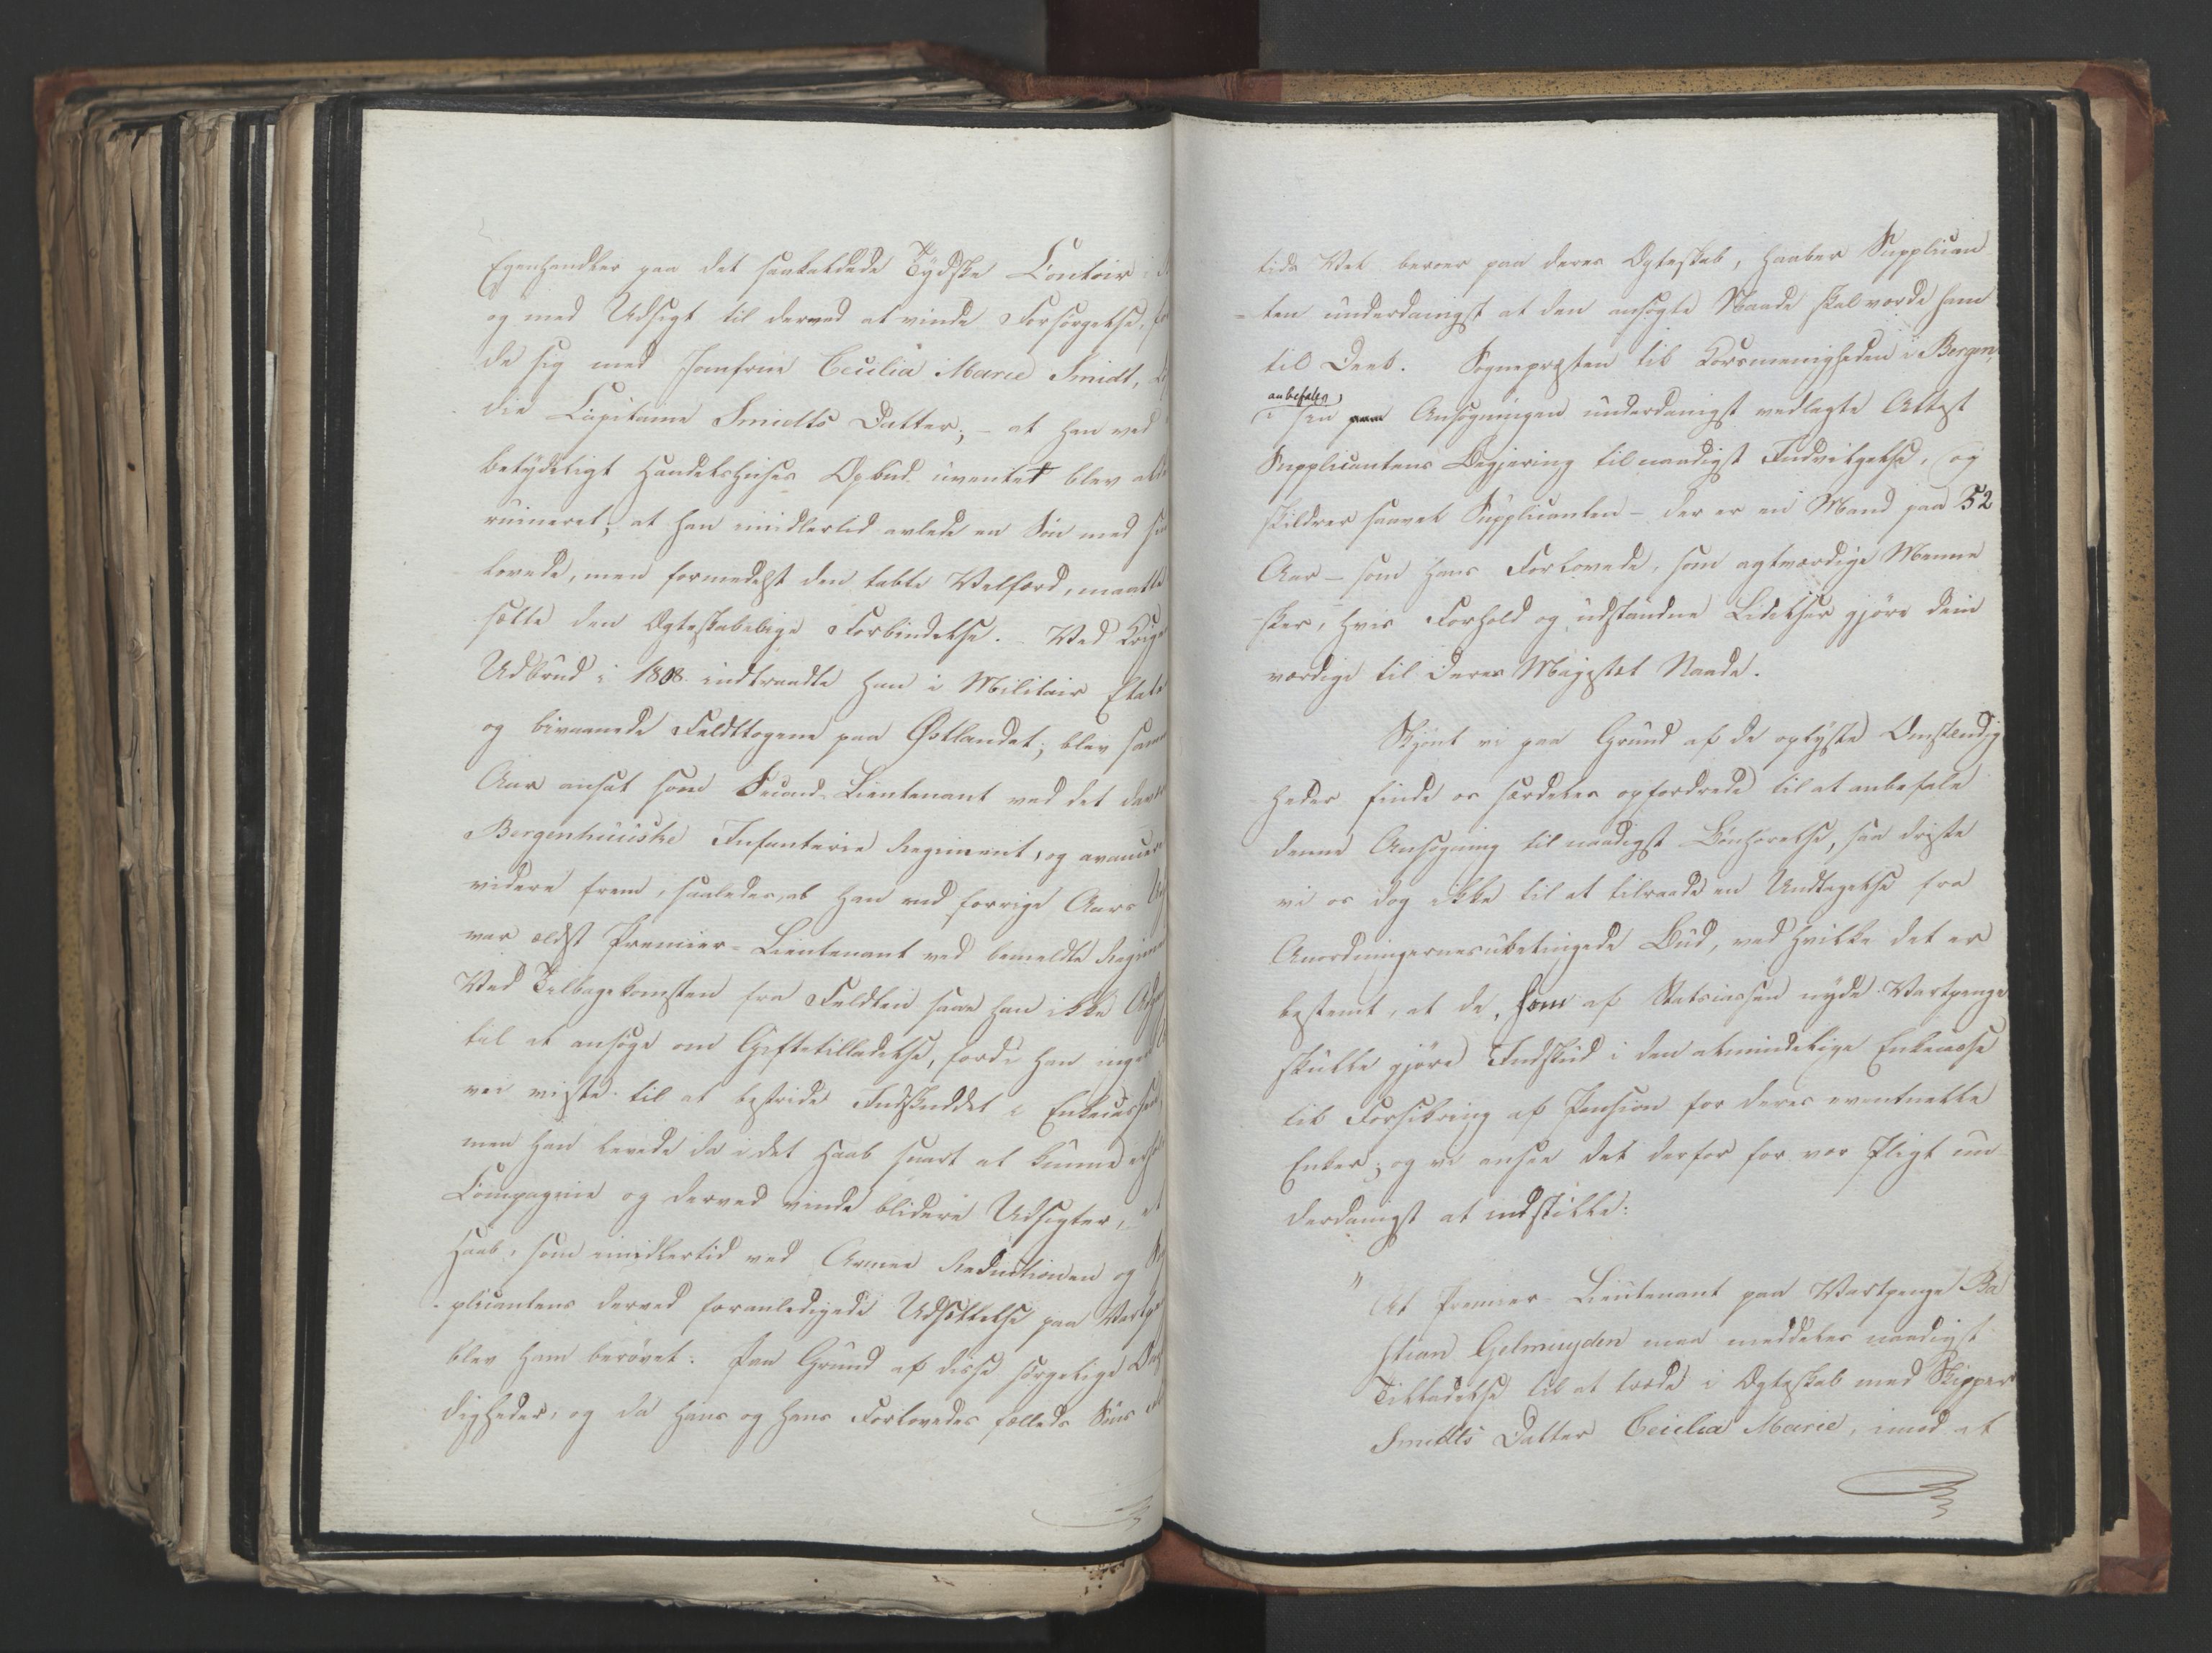 Egenhandler paa det saakaldede Tydske Contoir i
og med Udsigt til derved at vinde Forsørgelse,
de sig med Jomfrue Cecilia Marie Smidt,
die Capitaine Smidts Datter; – at han ved
betydeligt Handelshuses Opbud uventet blev
ruineret; at han imidlertid avlede en Søn med
lovede, men formedelst den tabte Velfærd, maatte
sætte den Ægteskabelige Forbindelse. – Ved Krigens
Udbrud i 1808 indtraadte han i Militair Etaten
og bivaanede Feldttogene paa Østlandet; blev samme
Aar ansat som Second-Lieutenant ved det
Bergenhuusiske Infanterie Regiment, og avancerede
videre frem, saaledes, at han ved forrige Aars
var ældst Premier-Lieutenant ved bemeldte Regiment
Ved Tilbagekomsten fra Feldten saae han ikke
til at ansøge om Giftetilladelse, fordi han ingen
vei vidste til at bestride Indskuddet i Enkecassen,
men han levede da i det Haab snart at kunne erholde
Compagnie og derved vinde blidere Udsigter, et
Haab, som imidlertid ved Armee Reductionen og
plicantens derved foranledigede Udsættelse paa
blev ham berøvet. Paa Grund af disse sørgelige
digheder, og da hans og hans Forlovedes fælleds Søns
tids Vel beroer paa deres Ægteskab, haaber Supplican
=ten underdanigst at den ansøgte Naade skal vorde ham
til Deel. Sognepræsten til Korsmenigheden i Bergen,
anbefaler,
i sin Ansøgningen underdanigst vedlagte Attest
Supplicantens Begjering til naadigst Indvilgelse, og
skildrer saavel Supplicanten – der er en Mand paa 52
Aar – som hans Forlovede, som agtværdige Menne
sker, hvis Forhold og udstandne Lidelser gjøre dem
værdige til Deres Majestæt Naade.
Skjønt vi paa Grund af de oplyste Omstændig
heder finde os særdeles opfordrede til at anbefale
denne Ansøgning til naadigst Bønhørelse, saa driste
vi os dog ikke til at tilraade en Undtagelse fra
Anordningernes ubetingede Bud, ved hvilke det er
bestemt, at de, som af Statscassen nyde Vartpenge
skulle gjøre Indskud i den almindelige Enkecasse
til Forsikring af Pension for deres eventuelle
Enker; og vi ansee det derfor for vor Pligt un
derdanigst at indstille:
" At Premier-Lieutenant paa Vartpenge Ba
stian Gelmuyden maa meddeles naadigst
Tilladelse til at træde i Ægteskab med Skipper
Smidts Datter Cecilia Marie, imod at